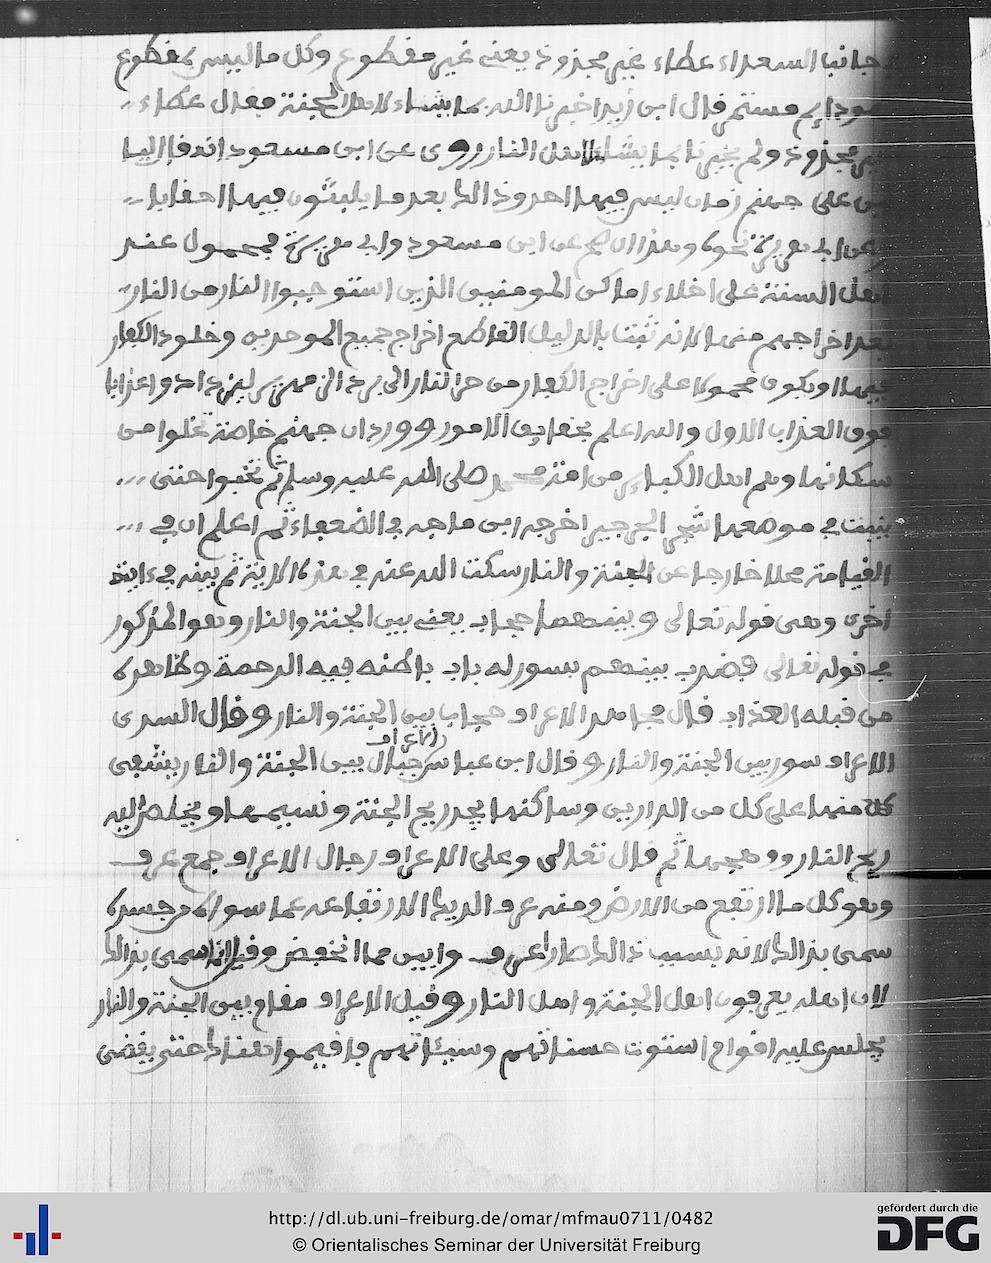 جانب السعداء عطاء غير مجذوذ يعني غير مقطوع وكل ما ليس بمقطوع
مستمر قال ابن زيد اخبرنا الله بما يشاء لاهل الجنة فقال عطاء
غير مجذوذ ولم يخبرنا بما يشاء لاهل النار وروي عن ابن مسعود انه قال ليا
تين على جهنم زمان ليس فيها احد وذالك بعد ما يلبثون فيها احقابا
وعن ابي هريرة نحوه وهذا ان صح عن ابن مسعود وابي هريرة فمحمول عند
اهل السنة على اخلاء اماكن المومنين الذين استوجبوا النار من النار
بعد اخراجهم منها لانه ثبت بالدليل القاطع اخراج جميع الموحدين وخلود الكفار
فيها او يكون محمولا على اخراج الكفار من حر النار الى برد الزمهرير ليزدادوا عذابا
فوق العذاب الاول والله اعلم بحقايق الامور وورد ان جهنم خاصة تخلوا من
سكانها وهم اهل الكباير من امة محمد صلى الله عليه وسلم ثم تخبوا حتى
ينبت في موضعها شجر الجرجير اخرجه ابن ماجه في الضعفاء ثم اعلم ان في
القيامة محلا خارجا عن الجنة والنار سكت الله عنه في هذه الاية ثم بينه في ءاية
اخرى وهي قوله تعالى وبينهما حجاب يعني بين الجنة والنار وهو المذكور
في قوله تعالى فضرب بينهم بسور له باب باطنه فيه الرحمة وظاهره
من قبله العذاب قال مجاهد الاعراف حجاب بين الجنة والنار وقال السدي
الاعراف سور بين الجنة والنار وقال ابن عباس الاعراف جبال بين الجنة والنار يشفى
كل منها على كل من الدارين وساكنها يجد ريح الجنة ونسيمها ويخلص اليه
ريح النار ووهجها ثم قال تعالى وعلى الاعراف رجال الاعراف جمع عرف
وهو كل ما ارتفع من الارض ومنه عرف الديك لارتفاعه عما سواه من جسده
سمى بذالك لانه بسبب ذالك صار اعرف وابين مما انخفض وقيل انما سمي بذالك
لان اهله يعرفون اهل الجنة واهل النار وقيل الاعراف مقام بين الجنة والنار
يجلس عليه اقوام استوت حسناتهم وسيئاتهم فاقيموا هناك حتى يقضى
http://dl.ub.uni-freiburg.de/omar/mfmau0711/0482
© Orientalisches Seminar der Universität Freiburg
gefördert durch die
DFG